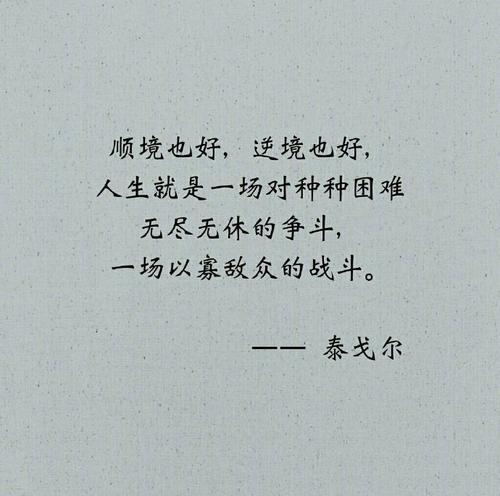 顺境也好，逆境也好，
人生就是一场对种种困难
无尽无休的争斗，
一场以寡敌众的战斗。
—— 泰戈尔